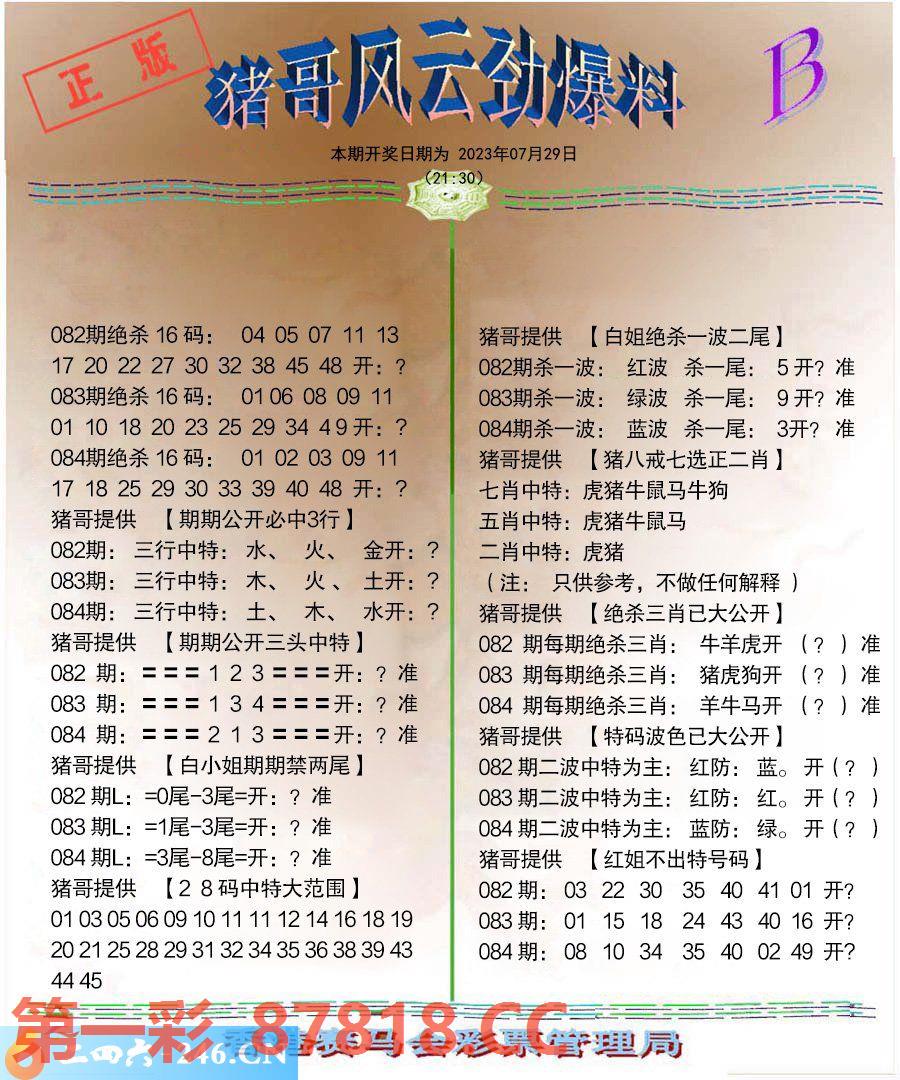 正版
猪哥风云劲爆料
B
本期开奖日期为 2023年07月29日
(21:30)
082期绝杀16码： 04 05 07 11 13
17 20 22 27 30 32 38 45 48 开：?
083期绝杀16码： 01 06 08 09 11
01 10 18 20 23 25 29 34 4 9 开：?
084期绝杀16码： 01 02 03 09 11
17 18 25 29 30 33 39 40 48 开：?
猪哥提供 【期期公开必中3行】
082期： 三行中特： 水、 火、 金开：?
083期： 三行中特： 木、 火、 土开：?
084期： 三行中特： 土、 木、 水开：?
猪哥提供 【期期公开三头中特】
082 期：===1 2 3===开：? 准
083 期：===1 3 4===开：? 准
084 期：===2 1 3===开：? 准
猪哥提供 【白小姐期期禁两尾】
082期L：=0尾-3尾=开：? 准
083期L：=1尾-3尾=开：? 准
084期L：=3尾-8尾=开：? 准
猪哥提供 【28码中特大范围】
01 03 05 06 09 10 11 11 12 14 16 18 19
20 21 25 28 29 31 32 34 35 36 38 39 43
44 45
猪哥提供 【白姐绝杀一波二尾】
082期杀一波： 红波 杀一尾： 5开? 准
083期杀一波： 绿波 杀一尾： 9开? 准
084期杀一波： 蓝波 杀一尾： 3开? 准
猪哥提供 【猪八戒七选正二肖】
七肖中特：虎猪牛鼠马牛狗
五肖中特：虎猪牛鼠马
二肖中特：虎猪
（注： 只供参考，不做任何解释）
猪哥提供 【绝杀三肖已大公开】
082 期每期绝杀三肖： 牛羊虎开 （? ）准
083 期每期绝杀三肖： 猪虎狗开 （? ）准
084 期每期绝杀三肖： 羊牛马开 （? ）准
猪哥提供 【特码波色已大公开】
082期二波中特为主：红防：蓝。开(? )
083期二波中特为主：红防：红。开(? )
084期二波中特为主：蓝防：绿。开(? )
猪哥提供 【红姐不出特号码】
082期：03 22 30 35 40 41 01 开?
083期：01 15 18 24 43 40 16 开?
084期：08 10 34 35 40 02 49 开?
第一彩 87818.CC
二四六 246.CN
香港赛马会彩票管理局